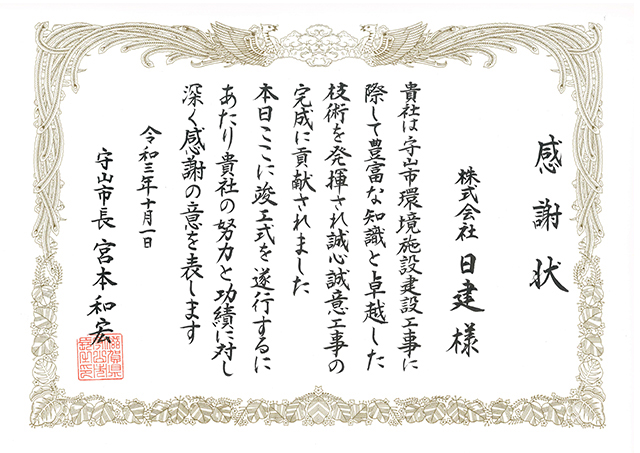 感謝状
株式会社 日建 様
貴社は守山市環境施設建設工事に
際して豊富な知識と卓越した
技術を発揮され誠心誠意工事の
完成に貢献されました
本日ここに竣工式を遂行するに
あたり貴社の努力と功績に対し
深く感謝の意を表します
令和三年十月一日
守山市長 宮本和宏